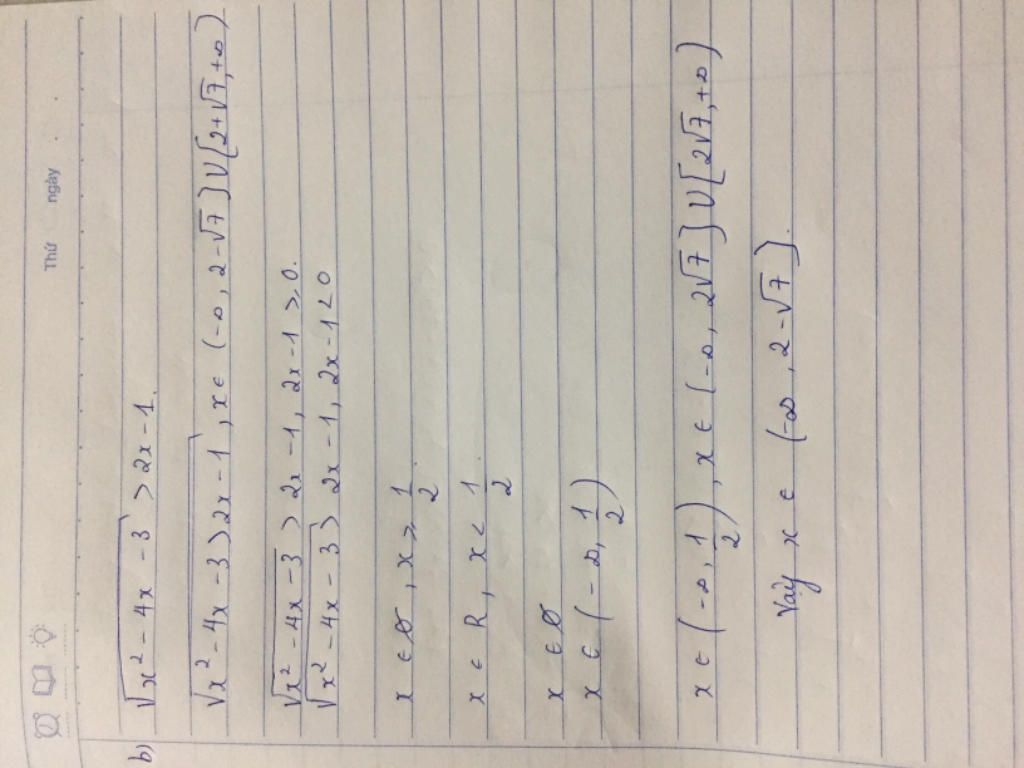 Thứ ngày
b) √(x² - 4x - 3) > 2x - 1.
√(x² - 4x - 3) > 2x - 1, x ∈ (-∞, 2 - √7] ∪ [2 + √7, +∞)
√(x² - 4x - 3) > 2x - 1, 2x - 1 ≥ 0.
√(x² - 4x - 3) > 2x - 1, 2x - 1 < 0
x ∈ ∅, x ≥ 1/2
x ∈ R, x < 1/2
x ∈ ∅
x ∈ (-∞, 1/2)
x ∈ (-∞, 1/2), x ∈ (-∞, 2√7] ∪ [2√7, +∞)
Vậy x ∈ (-∞, 2 - √7].